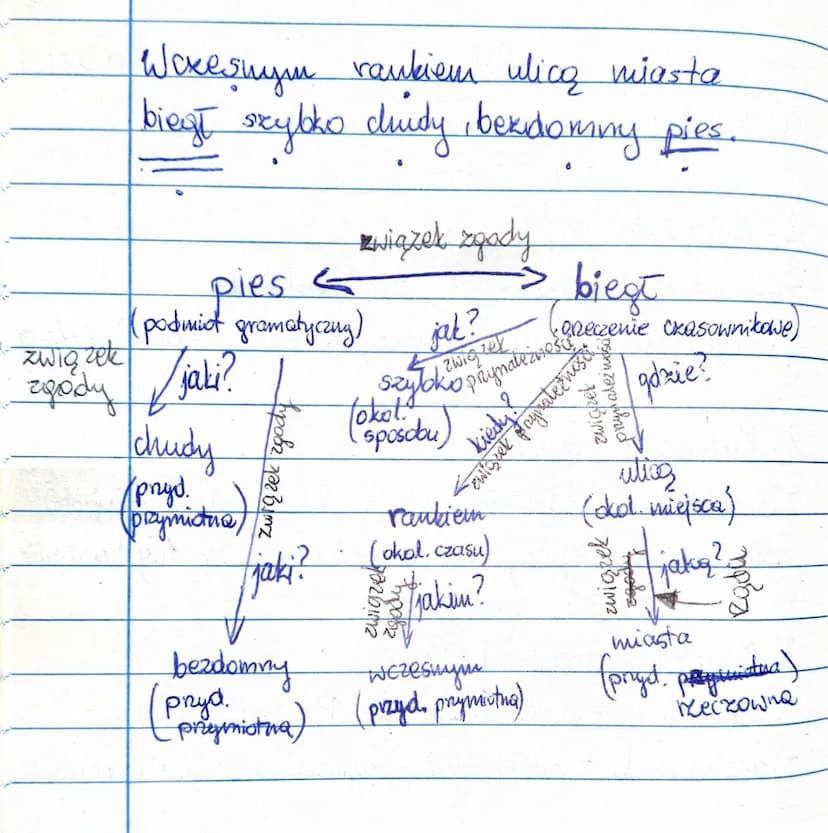 Wczesnym rankiem ulicą miasta
biegł szybko chudy, bezdomny pies.
związek zgody
pies biegł
(podmiot gramatyczny) jak? (orzeczenie czasownikowe)
związek zgody
jaki?
związek przynależności
związek przynależności
związek przynależności
gdzie?
szybko
(okol. sposobu)
kiedy?
związek zgody
chudy
(przyd. przymiotna)
ulicą
(okol. miejsca)
rankiem
(okol. czasu)
jaki?
związek zgody
jakim?
związek zgody
jaką?
rządu
bezdomny
(przyd. przymiotna)
wczesnym
(przyd. przymiotna)
miasta
(przyd. przymiotna)
rzeczowna